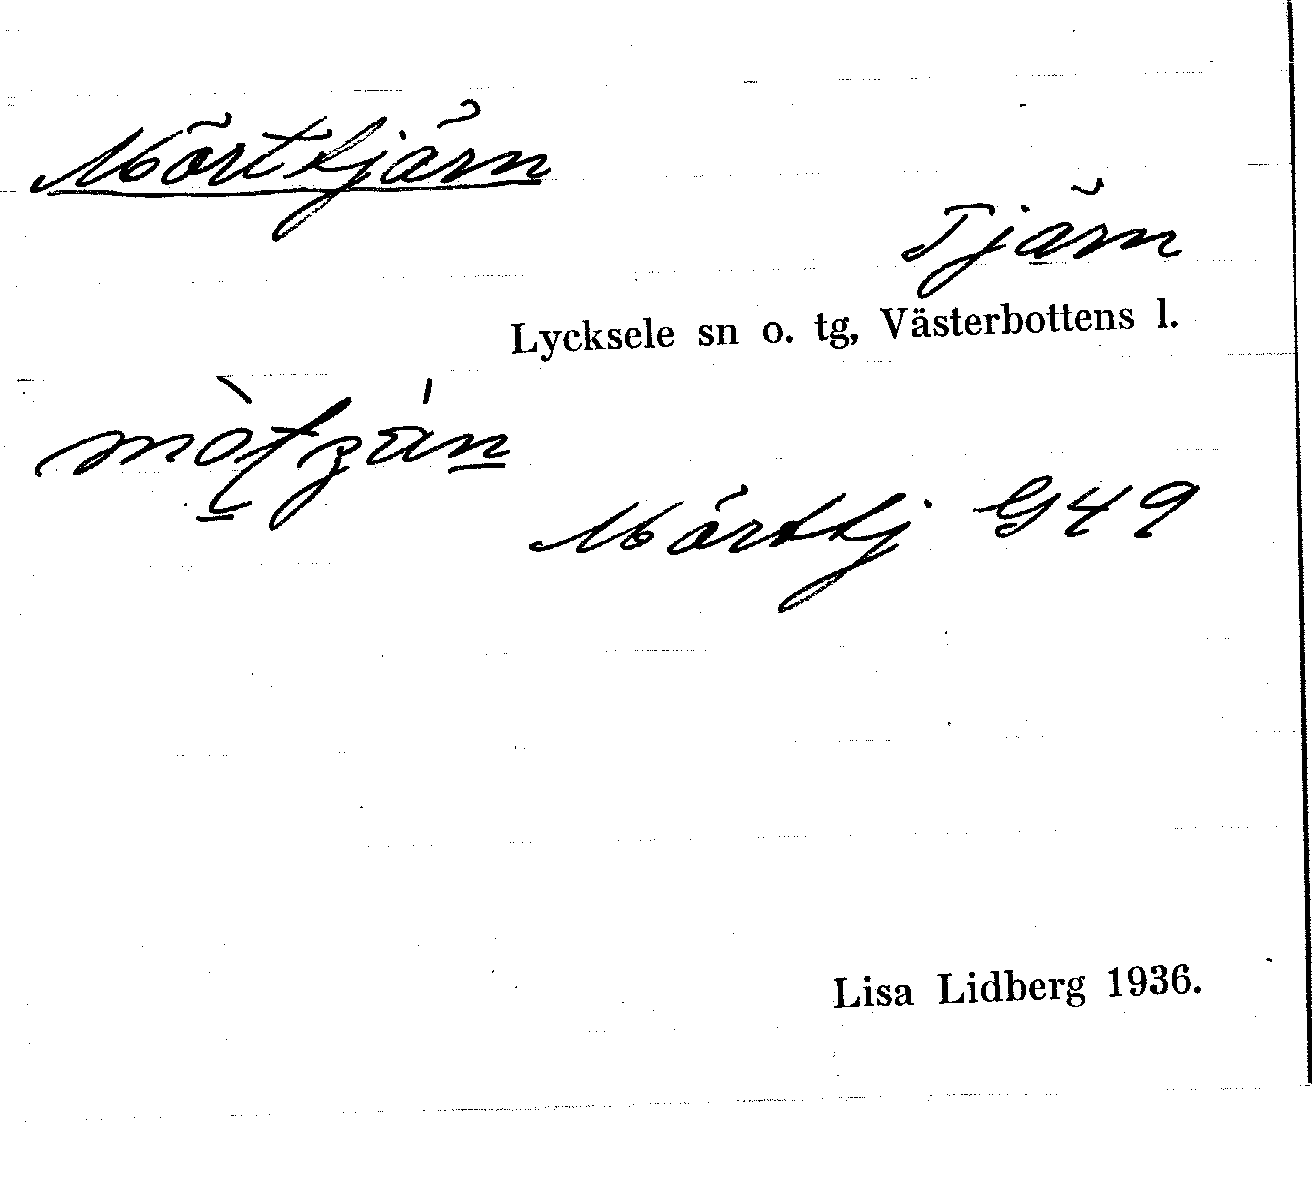 Mörttjärn
Tjärn
Lycksele sn o. tg, Västerbottens l.
Mörttj G49
Lisa Lidberg 1936.